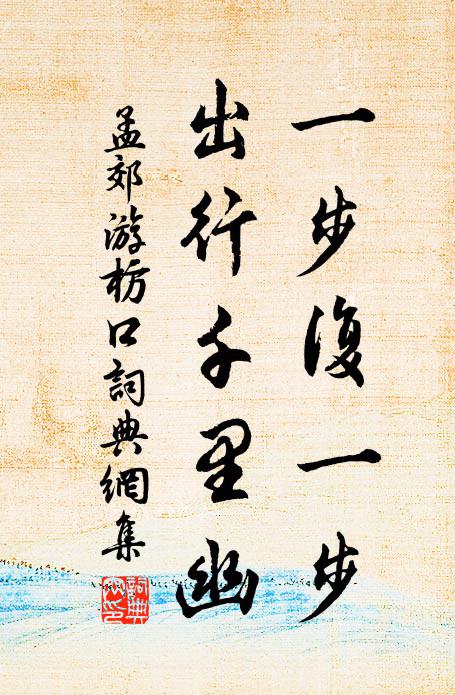 一步復一步
出行千里幽
孟郊游枋口詞典網集